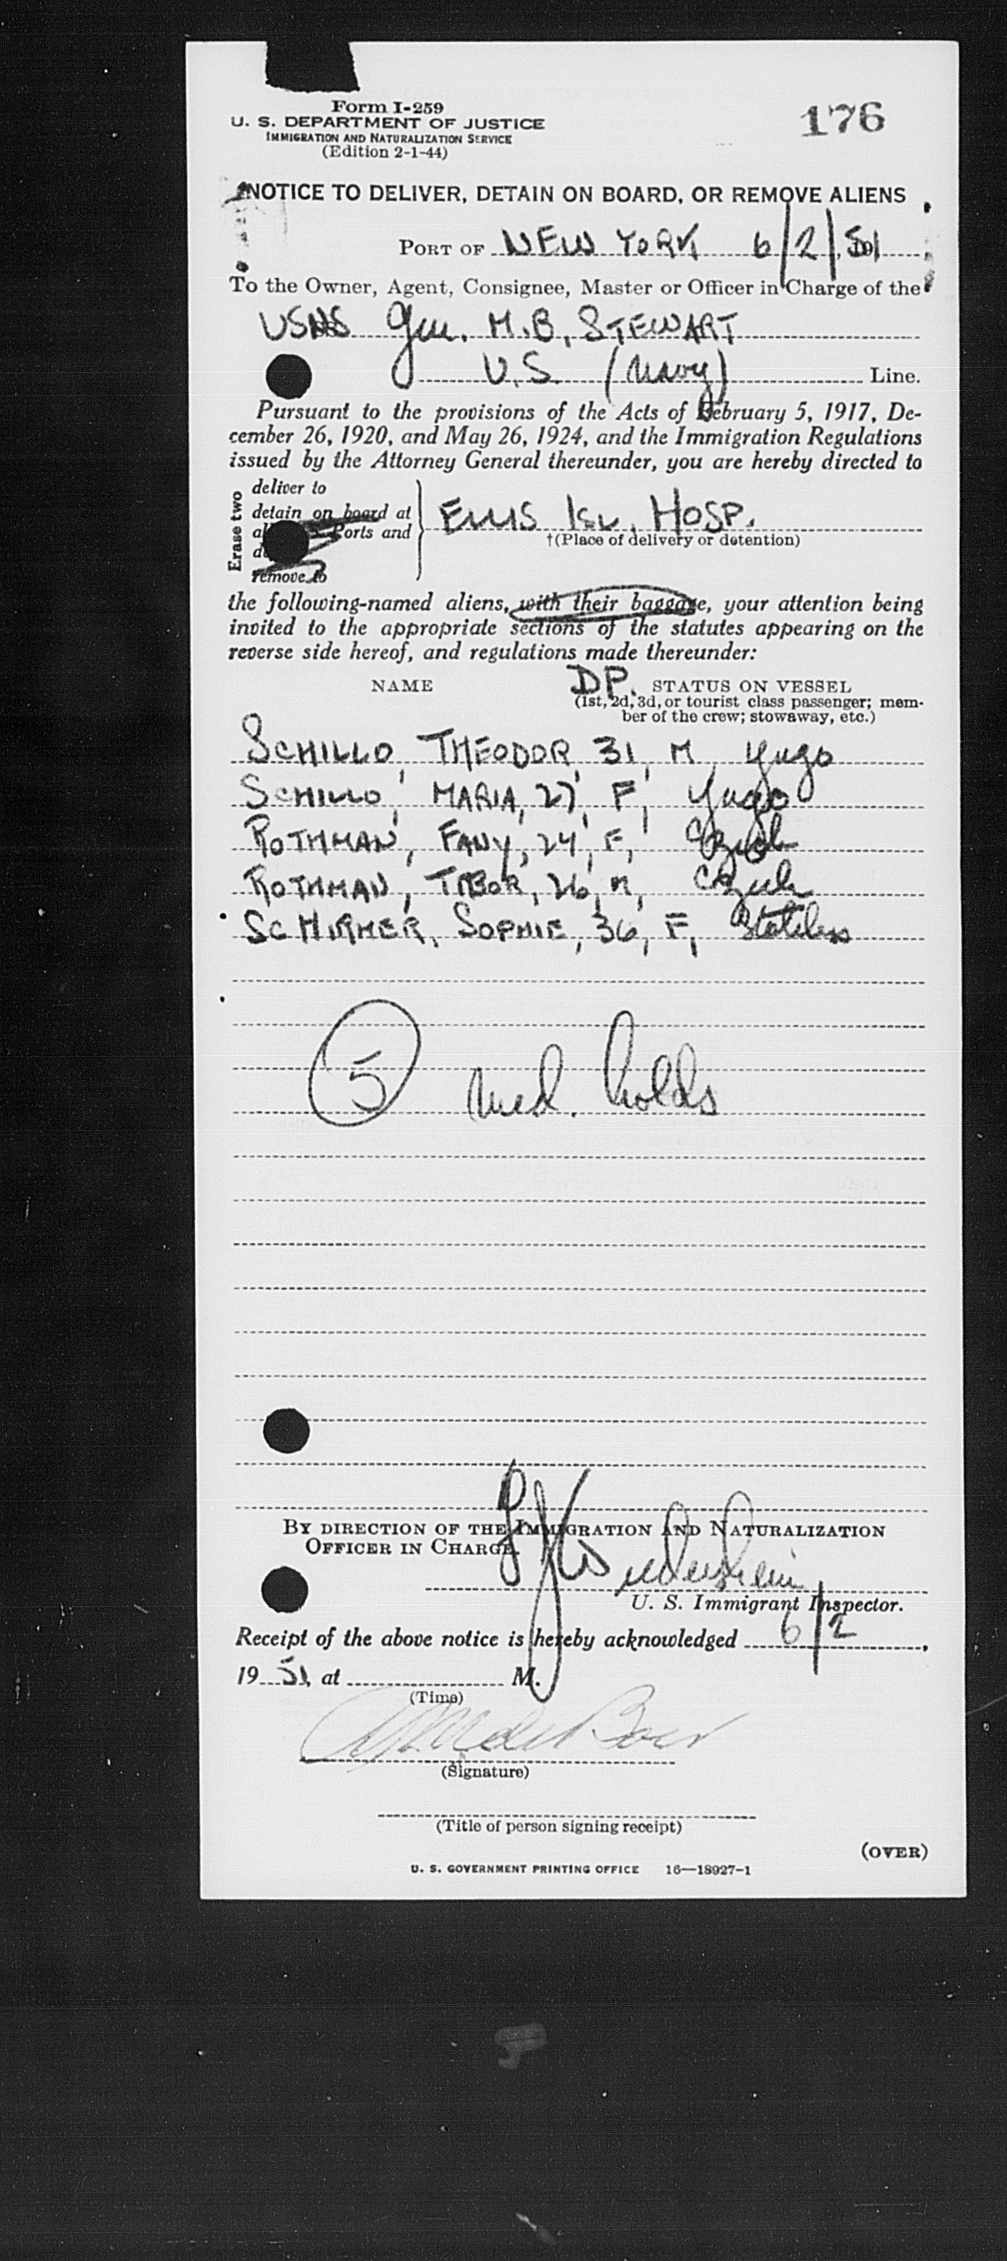 Form I-259
U. S. DEPARTMENT OF JUSTICE
IMMIGRATION AND NATURALIZATION SERVICE
(Edition 2-1-44)
176
NOTICE TO DELIVER, DETAIN ON BOARD, OR REMOVE ALIENS
PORT OF NEW YORK 6/2/51
To the Owner, Agent, Consignee, Master or Officer in Charge of the
USNS Gen. M.B. STEWART
U.S. (Navy) Line.
Pursuant to the provisions of the Acts of February 5, 1917, De-
cember 26, 1920, and May 26, 1924, and the Immigration Regulations
issued by the Attorney General thereunder, you are hereby directed to
Erase two
deliver to
detain on board at
Ports and
remove to
ELLIS ISL. HOSP.
†(Place of delivery or detention)
the following-named aliens, with their baggage, your attention being
invited to the appropriate sections of the statutes appearing on the
reverse side hereof, and regulations made thereunder:
NAME DP. STATUS ON VESSEL
(1st, 2d, 3d, or tourist class passenger; mem-
ber of the crew; stowaway, etc.)
SCHILLO, THEODOR, 31, M, Yugo
SCHILLO, MARIA, 27, F, Yugo
ROTHMAN, FANY, 24, F, Czech
ROTHMAN, TIBOR, 26, M, Czech
SCHIRMER, SOPHIE, 36, F, Stateless
5 med. holds
BY DIRECTION OF THE IMMIGRATION AND NATURALIZATION
OFFICER IN CHARGE.
U. S. Immigrant Inspector.
Receipt of the above notice is hereby acknowledged 6/2,
1951, at M.
(Time)
(Signature)
(Title of person signing receipt)
(OVER)
U. S. GOVERNMENT PRINTING OFFICE 16—18927-1